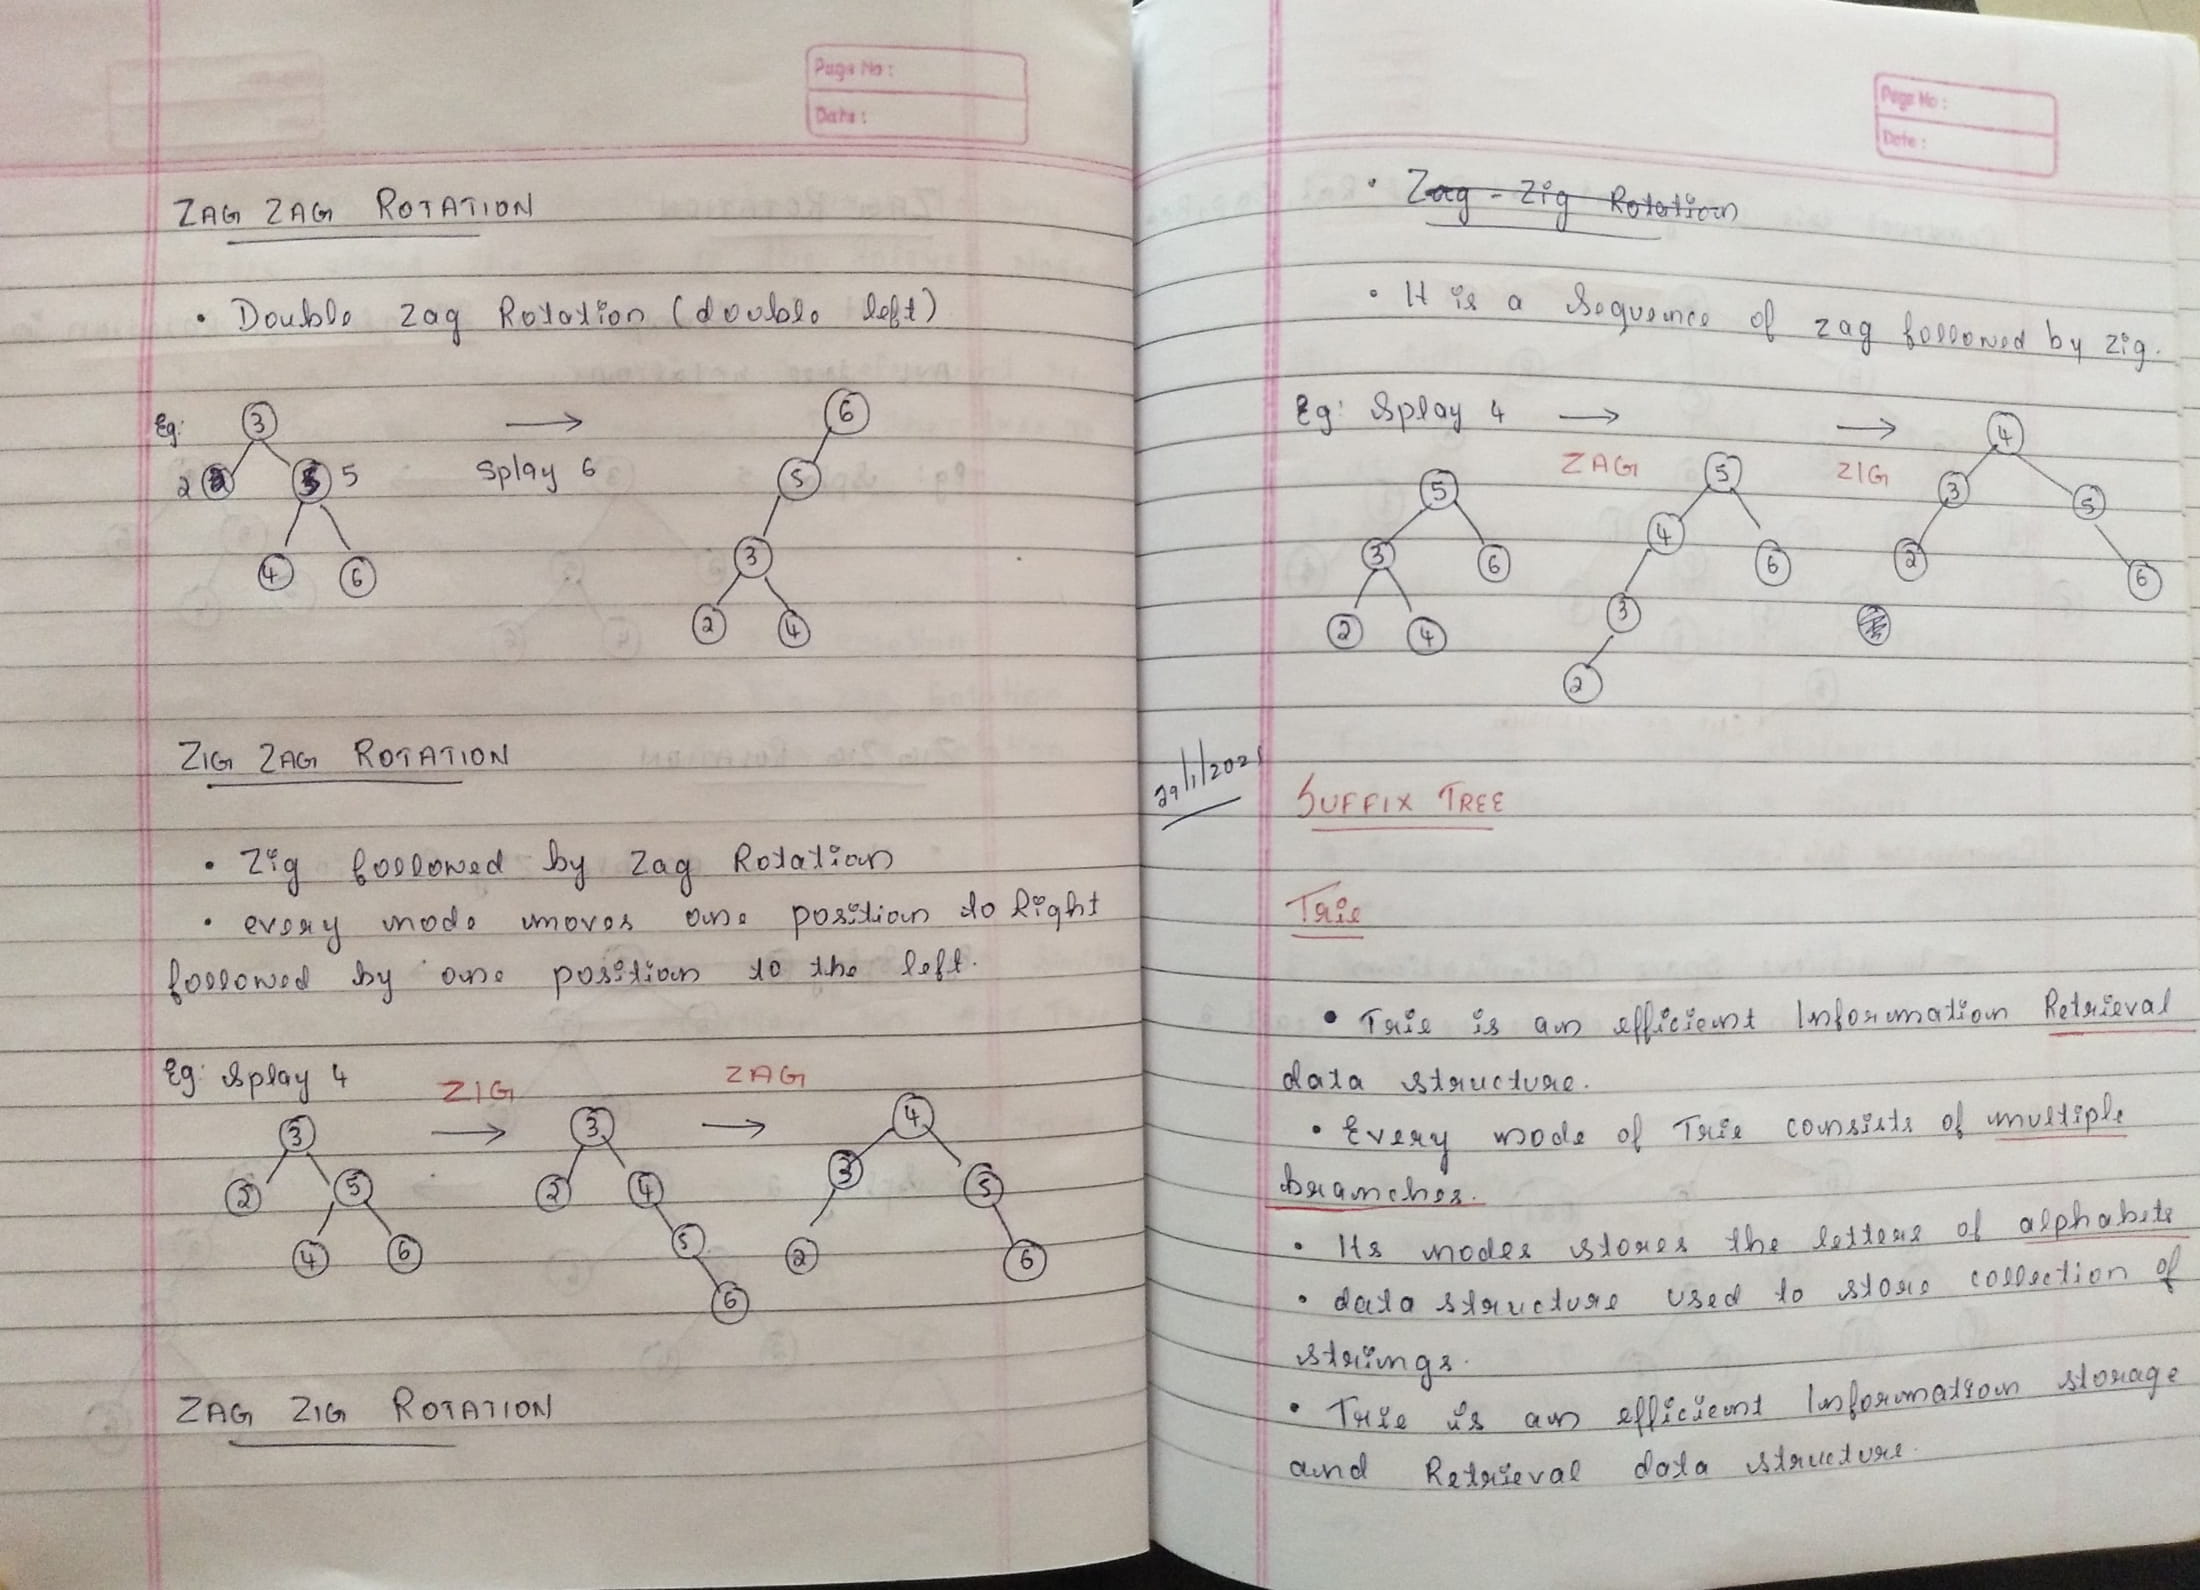 Page No :
Date :
ZAG ZAG ROTATION
• Double Zag Rotation (double left)
Eg:
3
2 5 5
4 6
Splay 6
6
5
3
2 4
ZIG ZAG ROTATION
• Zig followed by Zag Rotation
• every node moves one position to Right
followed by one position to the left.
Eg: Splay 4 ZIG ZAG
3
2 5
4 6
3
2 4
5
6
4
3 5
2 6
ZAG ZIG ROTATION
Page No :
Date :
• Zag - Zig Rotation
• It is a sequence of zag followed by zig.
Eg: Splay 4
ZAG ZIG
5
3 6
2 4
5
4 6
3
2
4
3 5
2 6
SUFFIX TREE
Trie
• Trie is an efficient Information Retrieval
data structure.
• Every node of Trie consists of multiple
branches.
• Its nodes stores the letters of alphabets
• data structure used to store collection of
strings.
• Trie is an efficient Information storage
and Retrieval data structure.